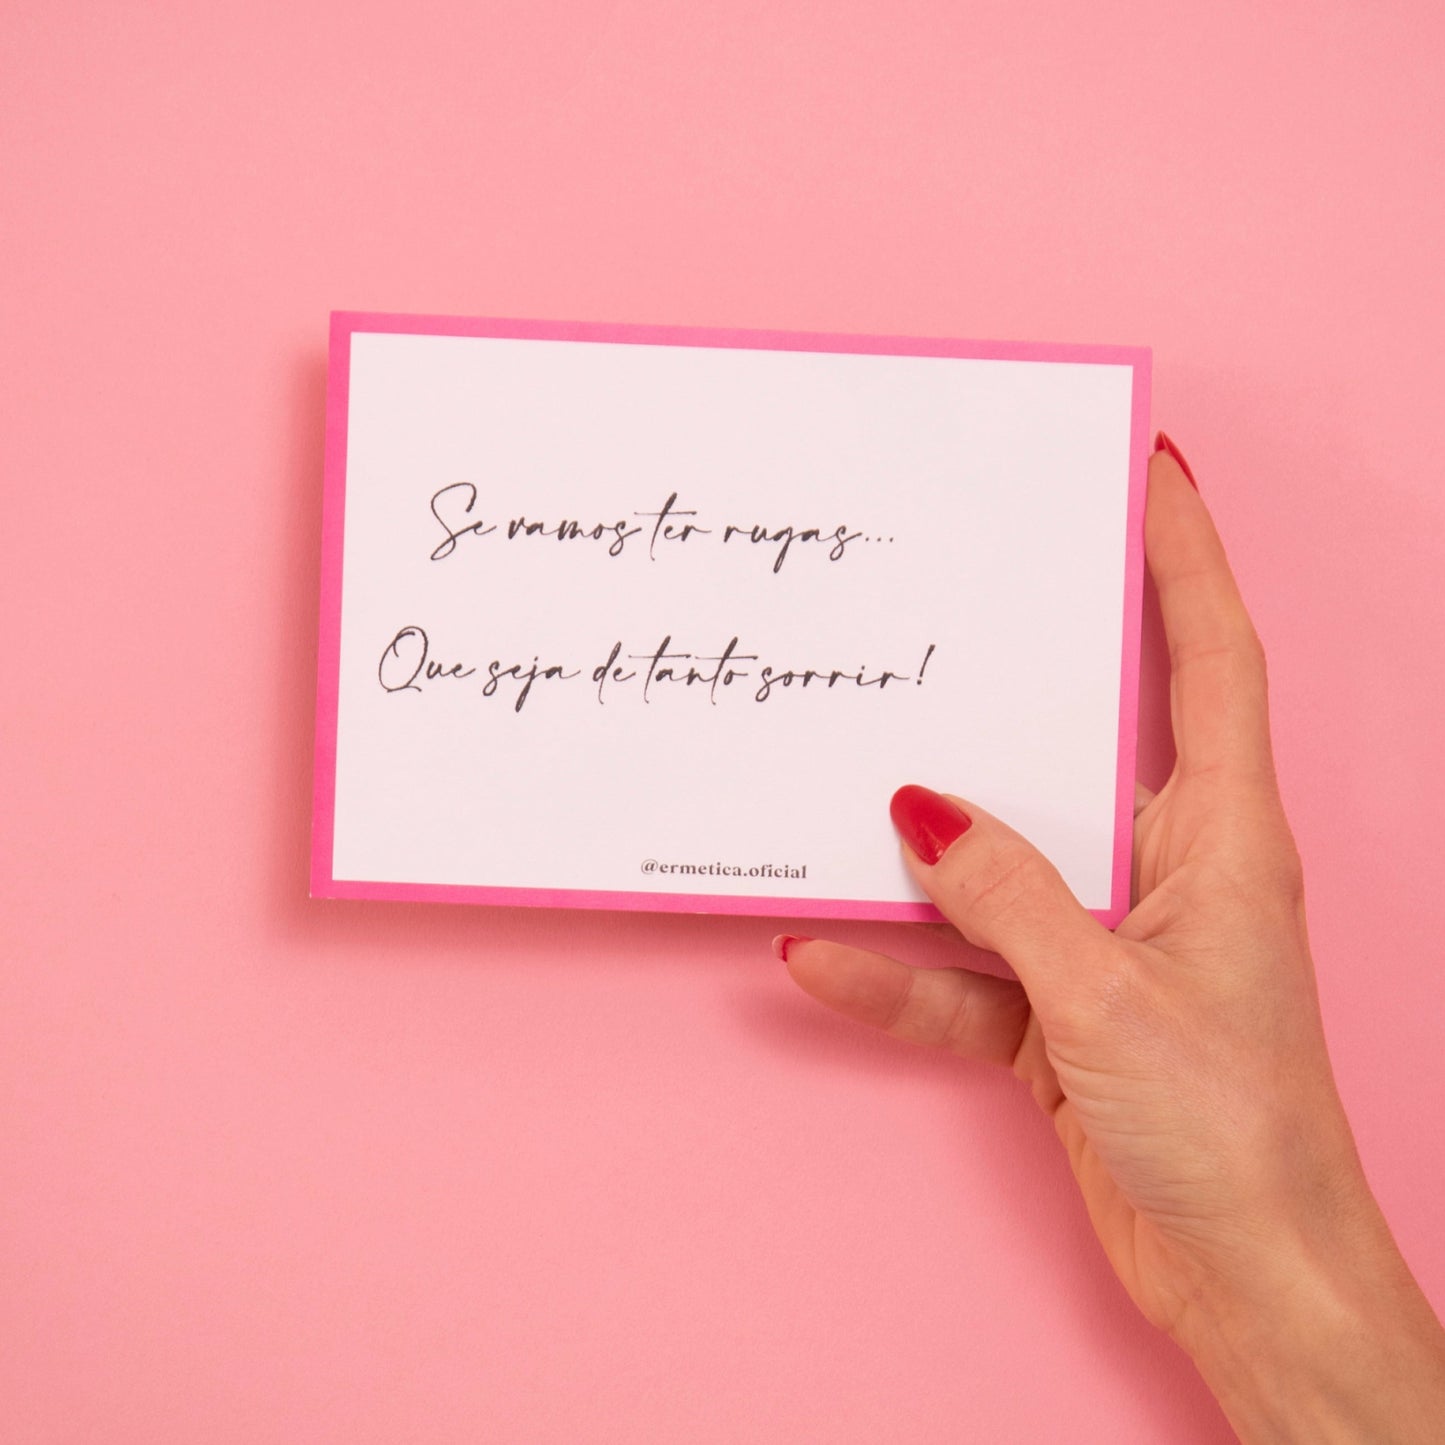 Se vamos ter rugas...
Que seja de tanto sorrir!
@ermetica.oficial